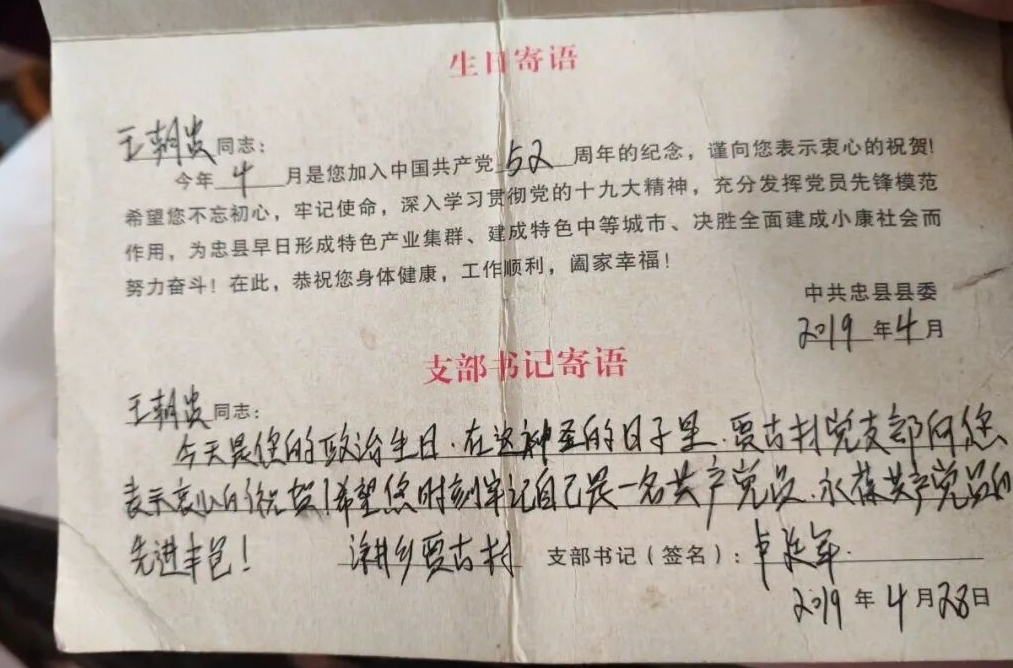 生日寄语
王朝贵同志：
今年4月是您加入中国共产党52周年的纪念，谨向您表示衷心的祝贺！
希望您不忘初心，牢记使命，深入学习贯彻党的十九大精神，充分发挥党员先锋模范
作用，为忠县早日形成特色产业集群、建成特色中等城市、决胜全面建成小康社会而
努力奋斗！在此，恭祝您身体健康，工作顺利，阖家幸福！
中共忠县县委
2019年4月
支部书记寄语
王朝贵同志：
今天是您的政治生日.在这神圣的日子里.贾古村党支部向您
表示衷心的祝贺！希望您时刻牢记自己是一名共产党员.永葆共产党员的
先进本色！ 涂井乡贾古村 支部书记（签名）：
2019年4月28日